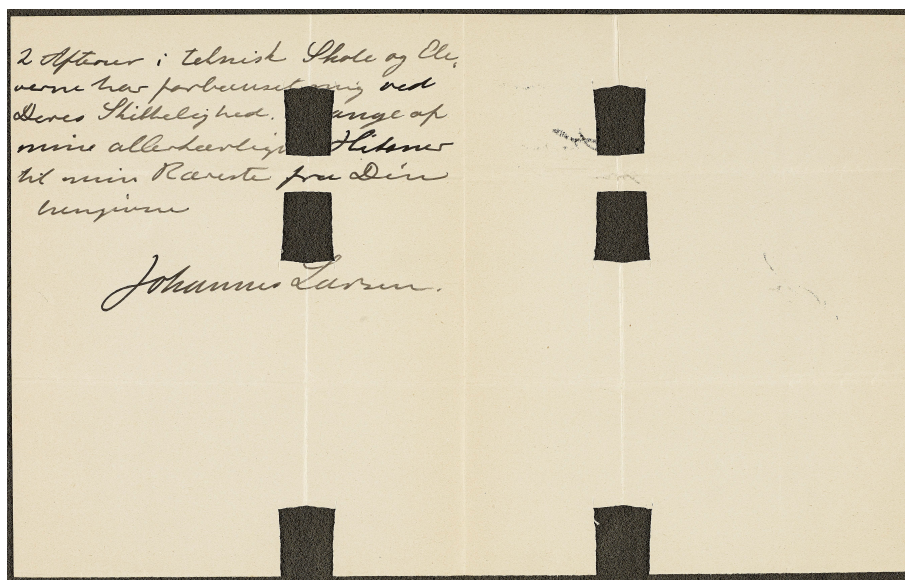 2 Aftener i teknisk Skole og Ele,
verne har forbauset mig ved
Deres Skikkelighed. ange af
mine allerkærlig Hilsner
til min Kæreste fra Din
hengivne
Johannes Larsen.